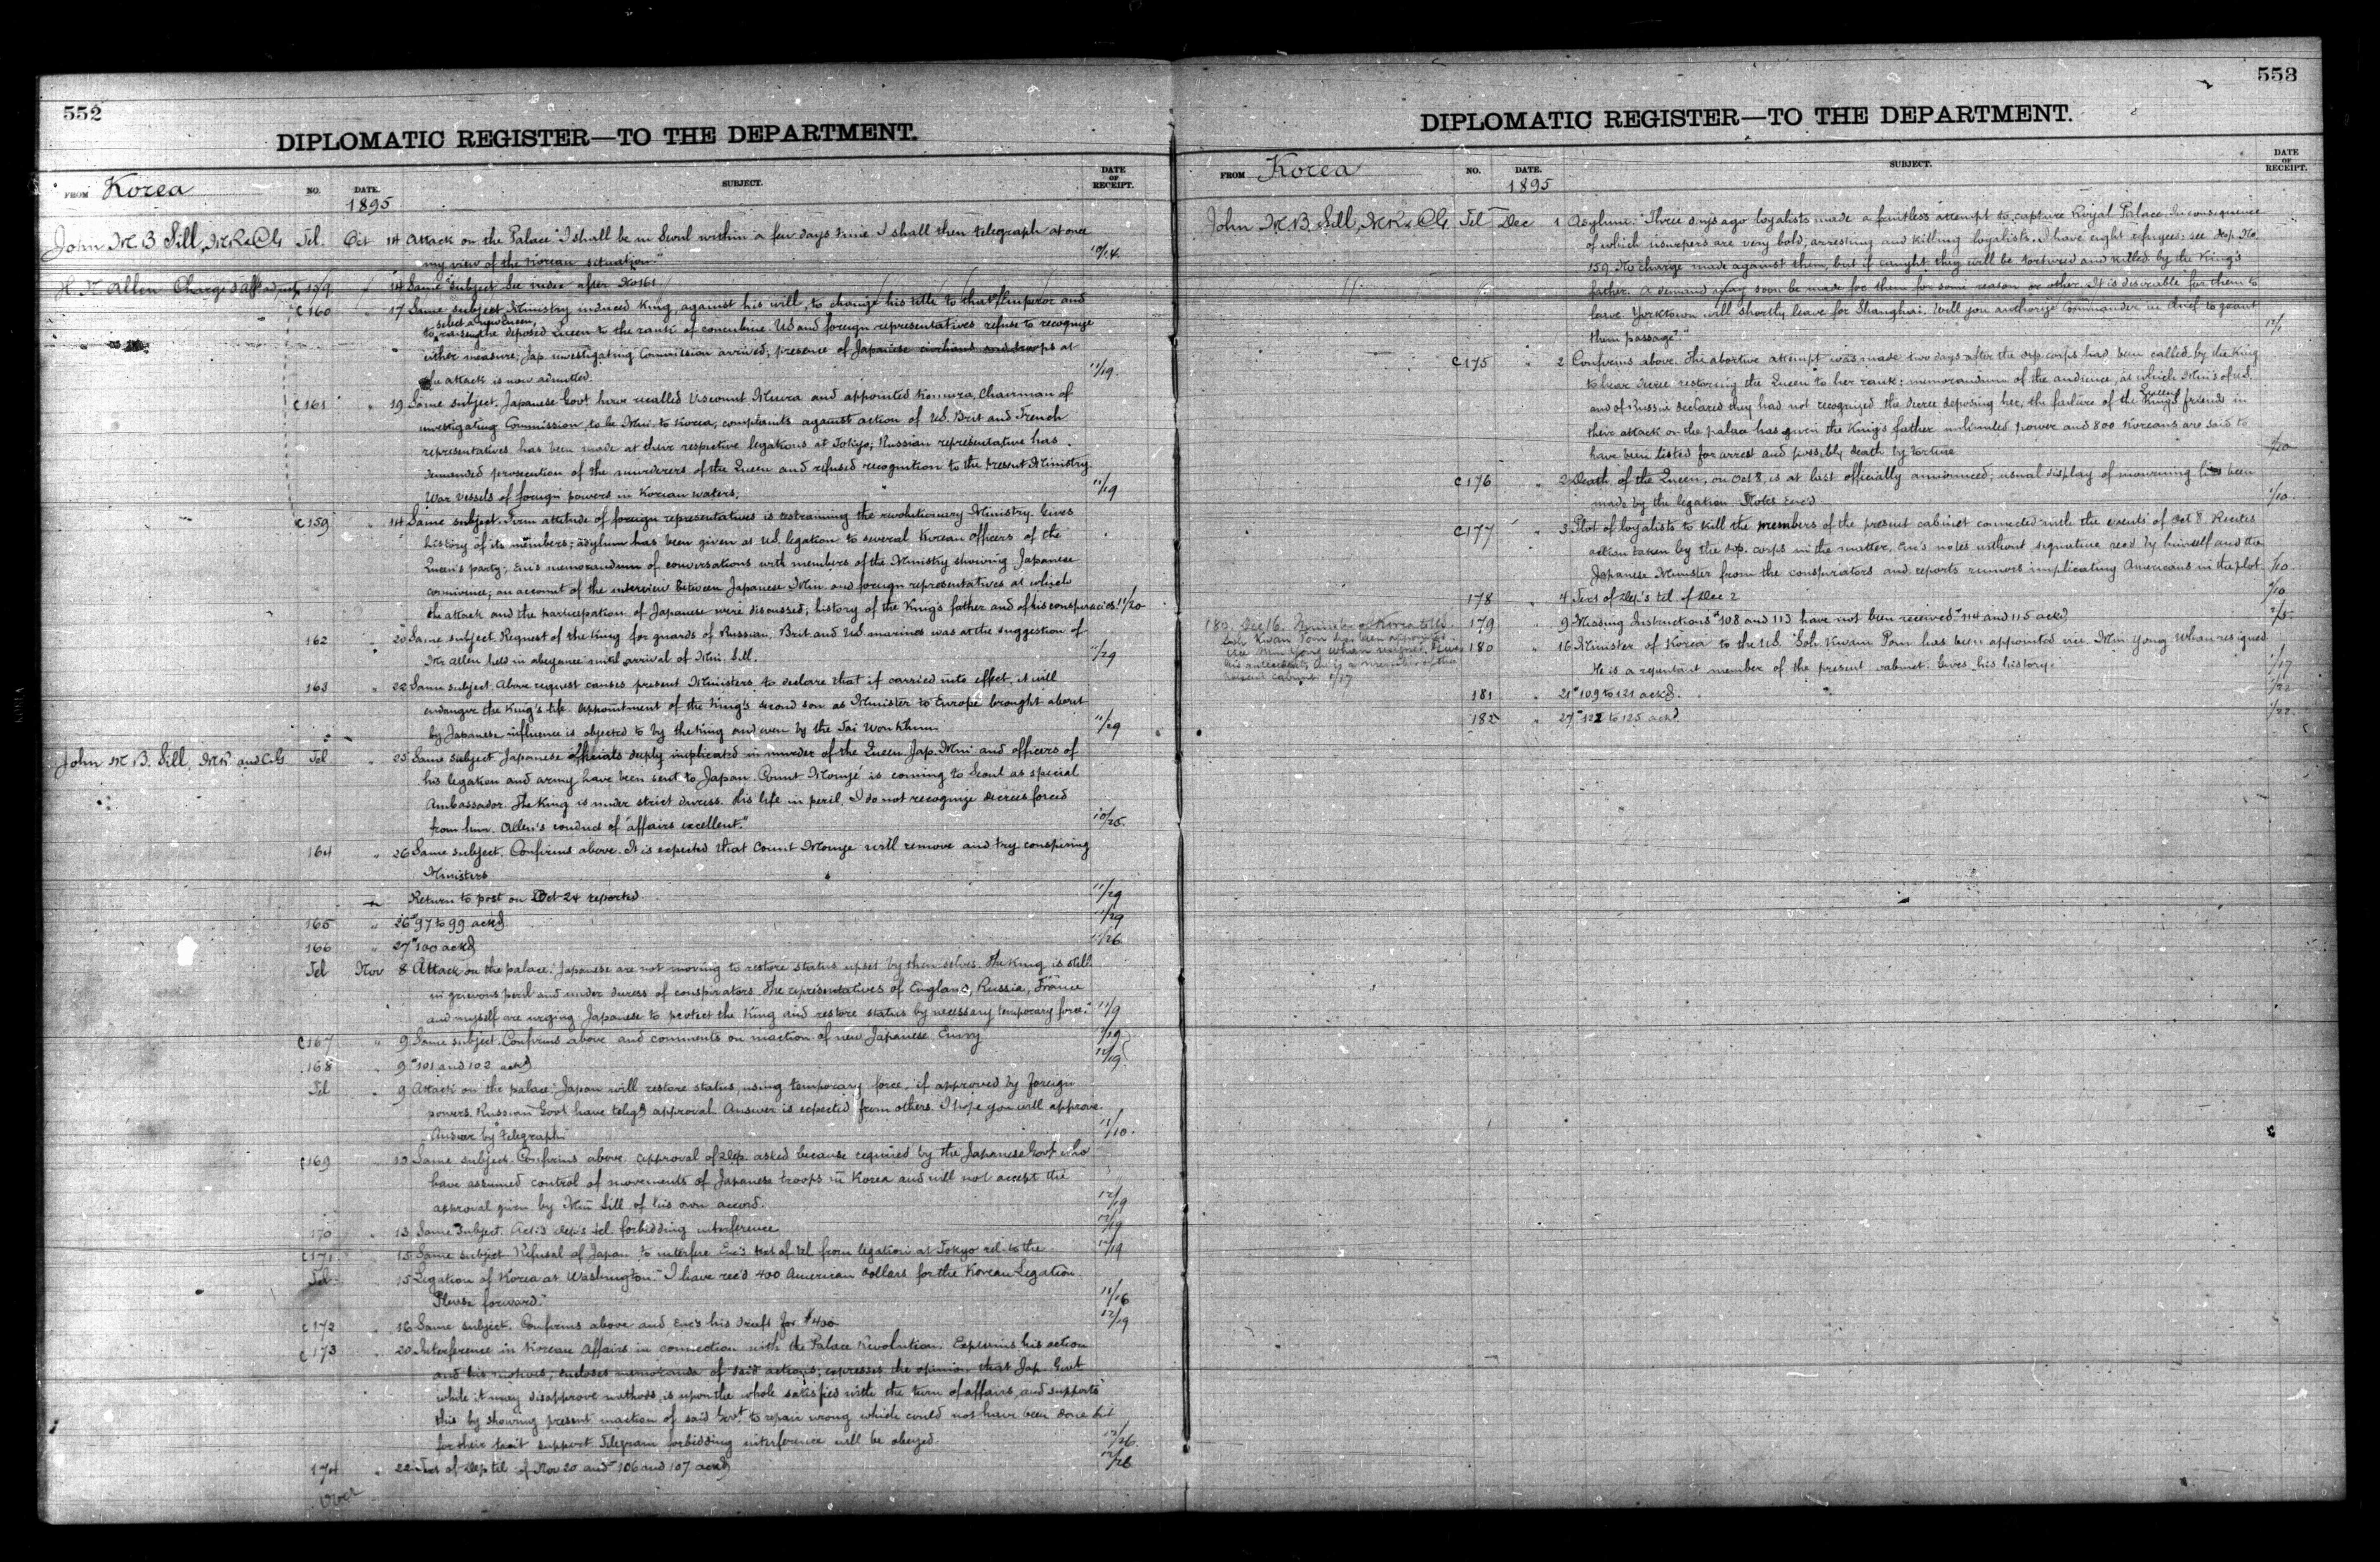 552
DIPLOMATIC REGISTER—TO THE DEPARTMENT.
FROM Korea NO. DATE. SUBJECT. DATE OF RECEIPT.
1895
John M. B Sill, MR & CG Tel. Oct 14 Attack on the Palace "I shall be in Seoul within a few days time I shall then telegraph at once
my view of the Korean situation." 10/14.
H. N. Allen Chargé d'aff ad int 159 " 14 Same subject See index after No 161
c 160 " 17 Same subject Ministry induced King, against his will, to change his title to that of Emperor and
select a new Queen,
to raising the deposed Queen to the rank of concubine. US and foreign representatives refuse to recognize
either measure; Jap. investigating Commission arrived; presence of Japanese civilians and troops at
the attack is now admitted. 11/19.
c 161 " 19 Same subject. Japanese Govt have recalled Viscount Miura and appointed Komura, Chairman of
investigating Commission, to be Min. to Korea; complaints against action of US. Brit and French
representatives has been made at their respective legations at Tokyo; Russian representative has
demanded prosecution of the murderers of the Queen and refused recognition to the present Ministry.
War vessels of foreign powers in Korean waters. 11/19
c 159 " 14 Same subject. Firm attitude of foreign representatives is restraining the revolutionary Ministry. Gives
history of its members; asylum has been given at US. legation to several Korean officers of the
Queen's party; Enc's memorandum of conversations with members of the Ministry showing Japanese
connivence; an account of the interview between Japanese Min. and foreign representatives at which
the attack and the participation of Japanese were discussed; history of the King's father and of his conspiracies. 11/20
162 " 20 Same subject. Request of the King for guards of Russian, Brit and US marines was at the suggestion of
Mr Allen held in abeyance until arrival of Min. Sill. 11/29
163 " 22 Same subject. Above request causes present Ministers to declare that if carried into effect, it will
endanger the King's life. Appointment of the King's second son as Minister to Europe brought about
by Japanese influence is objected to by the King and even by the Tai Won Khun. 11/29
John M B. Sill, MR and CG Tel " 25 Same subject. Japanese officials deeply implicated in murder of the Queen. Jap. Min and officers of
his legation and army have been sent to Japan. Count Inouyé is coming to Seoul as special
Ambassador. The King is under strict duress. His life in peril. I do not recognize decrees forced
from him. Allen's conduct of affairs excellent." 10/25.
164 " 26 Same subject. Confirms above. It is expected that Count Inouye will remove and try conspiring
Ministers
Return to post on Oct 24 reported. 11/29
165 " 26 "97 to 99 ackd. 11/29
166 " 27 "100 ackd 11/26
Tel Nov 8 Attack on the palace. "Japanese are not moving to restore status upset by themselves. The King is still
in grievous peril and under duress of conspirators. The representatives of England, Russia, France
and myself are urging Japanese to protect the King and restore status by necessary temporary force." 11/9
c 167 " 9 Same subject. Confirms above and comments on inaction of new Japanese Envoy 12/19
168 " 9 "101 and 102 ackd 12/19
Tel " 9 Attack on the palace: Japan will restore status, using temporary force, if approved by foreign
powers. Russian Govt have telegd approval. Answer is expected from others. I hope you will approve.
Answer by telegraph. 11/10.
c 169 Same subject. Confirms above. Approval of Dep. asked because required by the Japanese Govt who
have assumed control of movements of Japanese troops in Korea and will not accept the
approval given by Min Sill of his own accord. 12/19
170 " 13 Same Subject. Acks Dep's tel. forbidding interference 12/19
c 171 " 15 Same subject. Refusal of Japan to interfere. Enc's text of tel from legation at Tokyo rel. to the. 12/19
Tel 15 Legation of Korea at Washington. "I have rec'd 400 American dollars for the Korean Legation.
Please forward." 11/16
c 172 " 16 Same subject. Confirms above and Enc's his draft for $400 12/19
c 173 " 20 Interference in Korean affairs in connection with the Palace Revolution. Explains his action
and his motives, encloses memoranda of said actions; expresses the opinion that Jap. Govt
while it may disapprove methods, is upon the whole satisfied with the turn of affairs, and supports
this by showing present inaction of said Govt to repair wrong which could not have been done but
for their tacit support. Telegram forbidding interference will be obeyed. 12/26.
174 " 22 Text of Dep tel of Nov 20 and "106 and 107 ackd 12/26
Over
553
DIPLOMATIC REGISTER—TO THE DEPARTMENT.
FROM Korea NO. DATE. SUBJECT. DATE OF RECEIPT.
1895
John M B Sill, MR & CG. Tel Dec 1 Asylum: "Three days ago loyalists made a fruitless attempt to capture Royal Palace. In consequence
of which usurpers are very bold, arresting and killing loyalists. I have eight refugees: see dep. No.
159. No charge made against them, but if caught they will be tortured and killed by the King's
father. A demand may soon be made for them for some reason or other. It is desirable for them to
leave. Yorktown will shortly leave for Shanghai. Will you authorize Commander in chief to grant
them passage?" 12/1
c 175 " 2 Confirms above. The abortive attempt was made two days after the dip. corps had been called by the King
to hear decree restoring the Queen to her rank: memorandum of the audience, at which Min's of US.
and of Russia declared they had not recognized the decree deposing her, the failure of the
Queen's
King's friends in
their attack on the palace has given the King's father unlimited power and 800 Koreans are said to
have been listed for arrest and possibly death by torture 1/10
c 176 " 2 Death of the Queen, on Oct 8, is at last officially announced; usual display of mourning has been
made by the legation. Notes Enc'd 1/10.
c 177 " 3 Plot of loyalists to kill the members of the present cabinet connected with the events of Oct 8. Recites
action taken by the dip. corps in the matter, Enc's notes without signature recd by himself and the
Japanese Minister from the conspirators and reports rumors implicating Americans in the plot. 1/10.
178 " 4 Text of Dep's tel of Dec 2 1/10
179 " 9 Missing Instructions "108 and 113 have not been received. "114 and 115 ackd
180, Dec 16. Minister of Korea to US.
Soh Kwan Pom has been appointed
vice Min Yong Whan resigned. Gives
his antecedents. He is a member of the
present cabinet. 1/17
180 " 16 Minister of Korea to the US. Soh Kwan Pom has been appointed vice Min Yong Whan resigned.
He is a repentant member of the present cabinet. Gives his history. 1/17
181 " 21 "109 to 121 ackd. 1/22
182 " 27 "122 to 125 ackd. 1/22